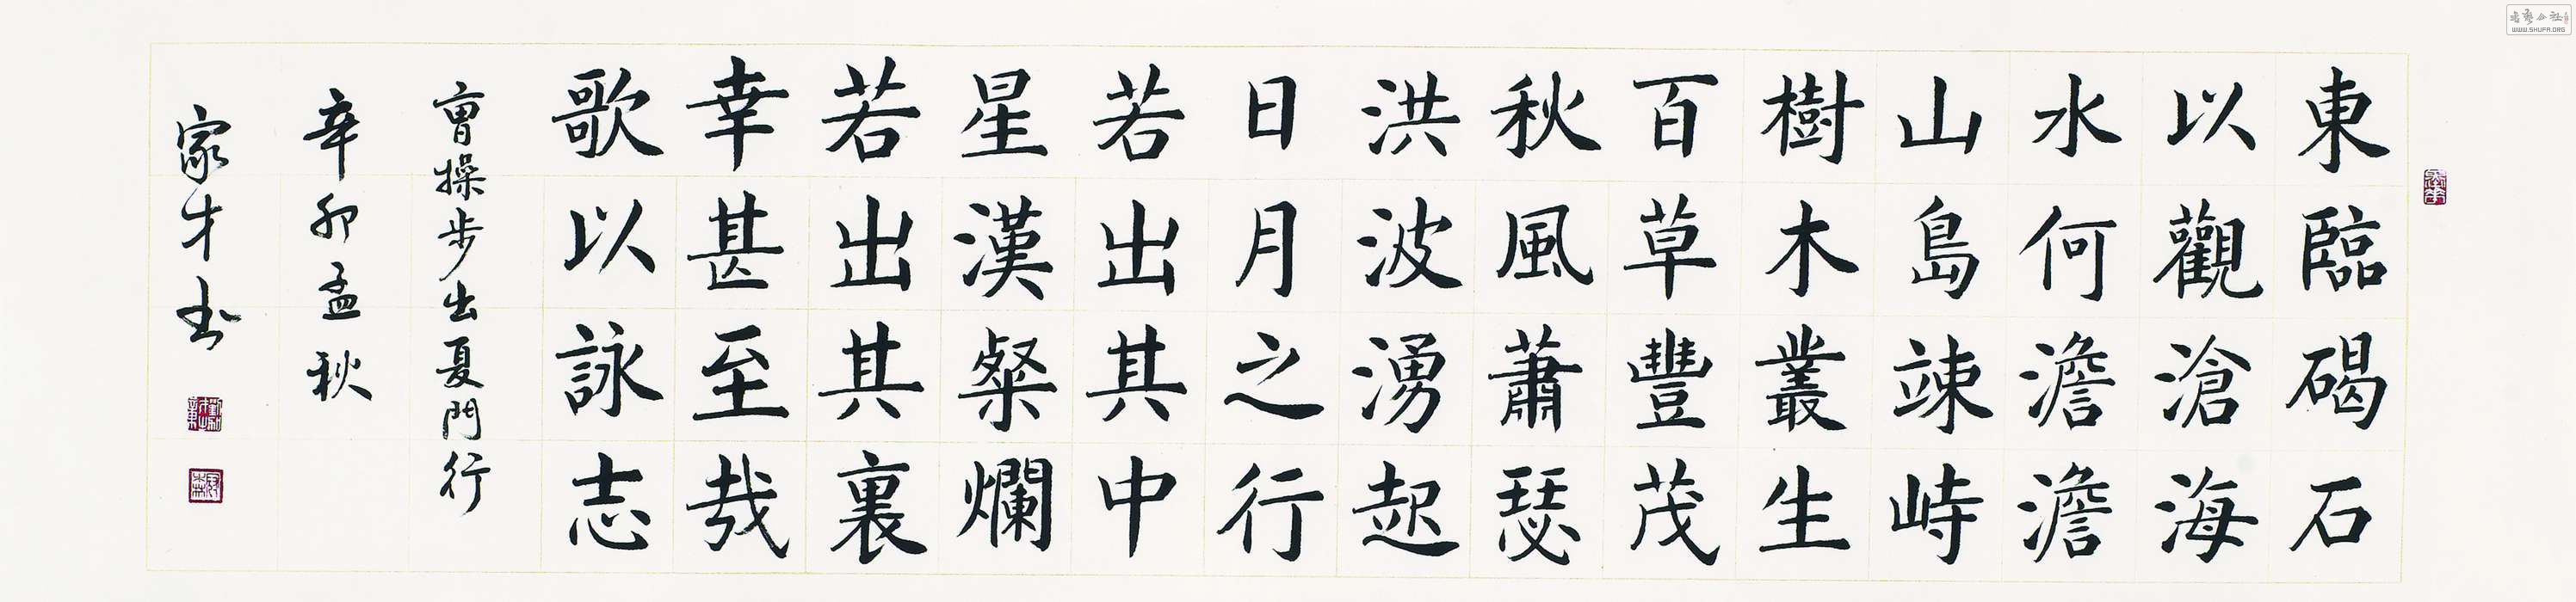 東臨碣石
以觀滄海
水何澹澹
山島竦峙
樹木叢生
百草豐茂
秋風蕭瑟
洪波湧起
日月之行
若出其中
星漢粲爛
若出其裏
幸甚至哉
歌以詠志
曹操步出夏門行
辛卯孟秋
家才书
WWW.SHUFA.ORG